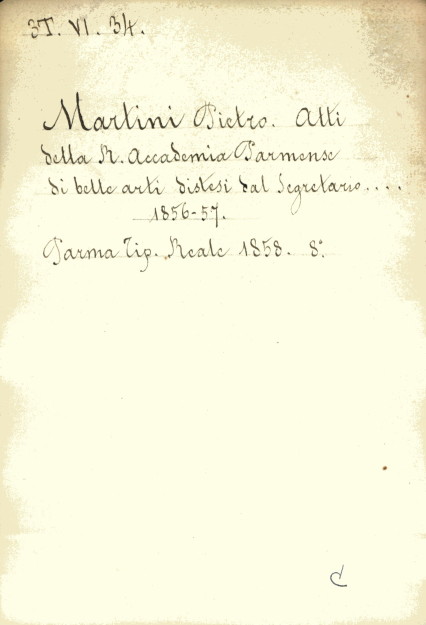 3T. VI. 34.
Martini Pietro. Atti
della R. Accademia Parmense
di belle arti distesi dal Segretario....
1856-57.
Parma Tip. Reale 1858. 8°.
C